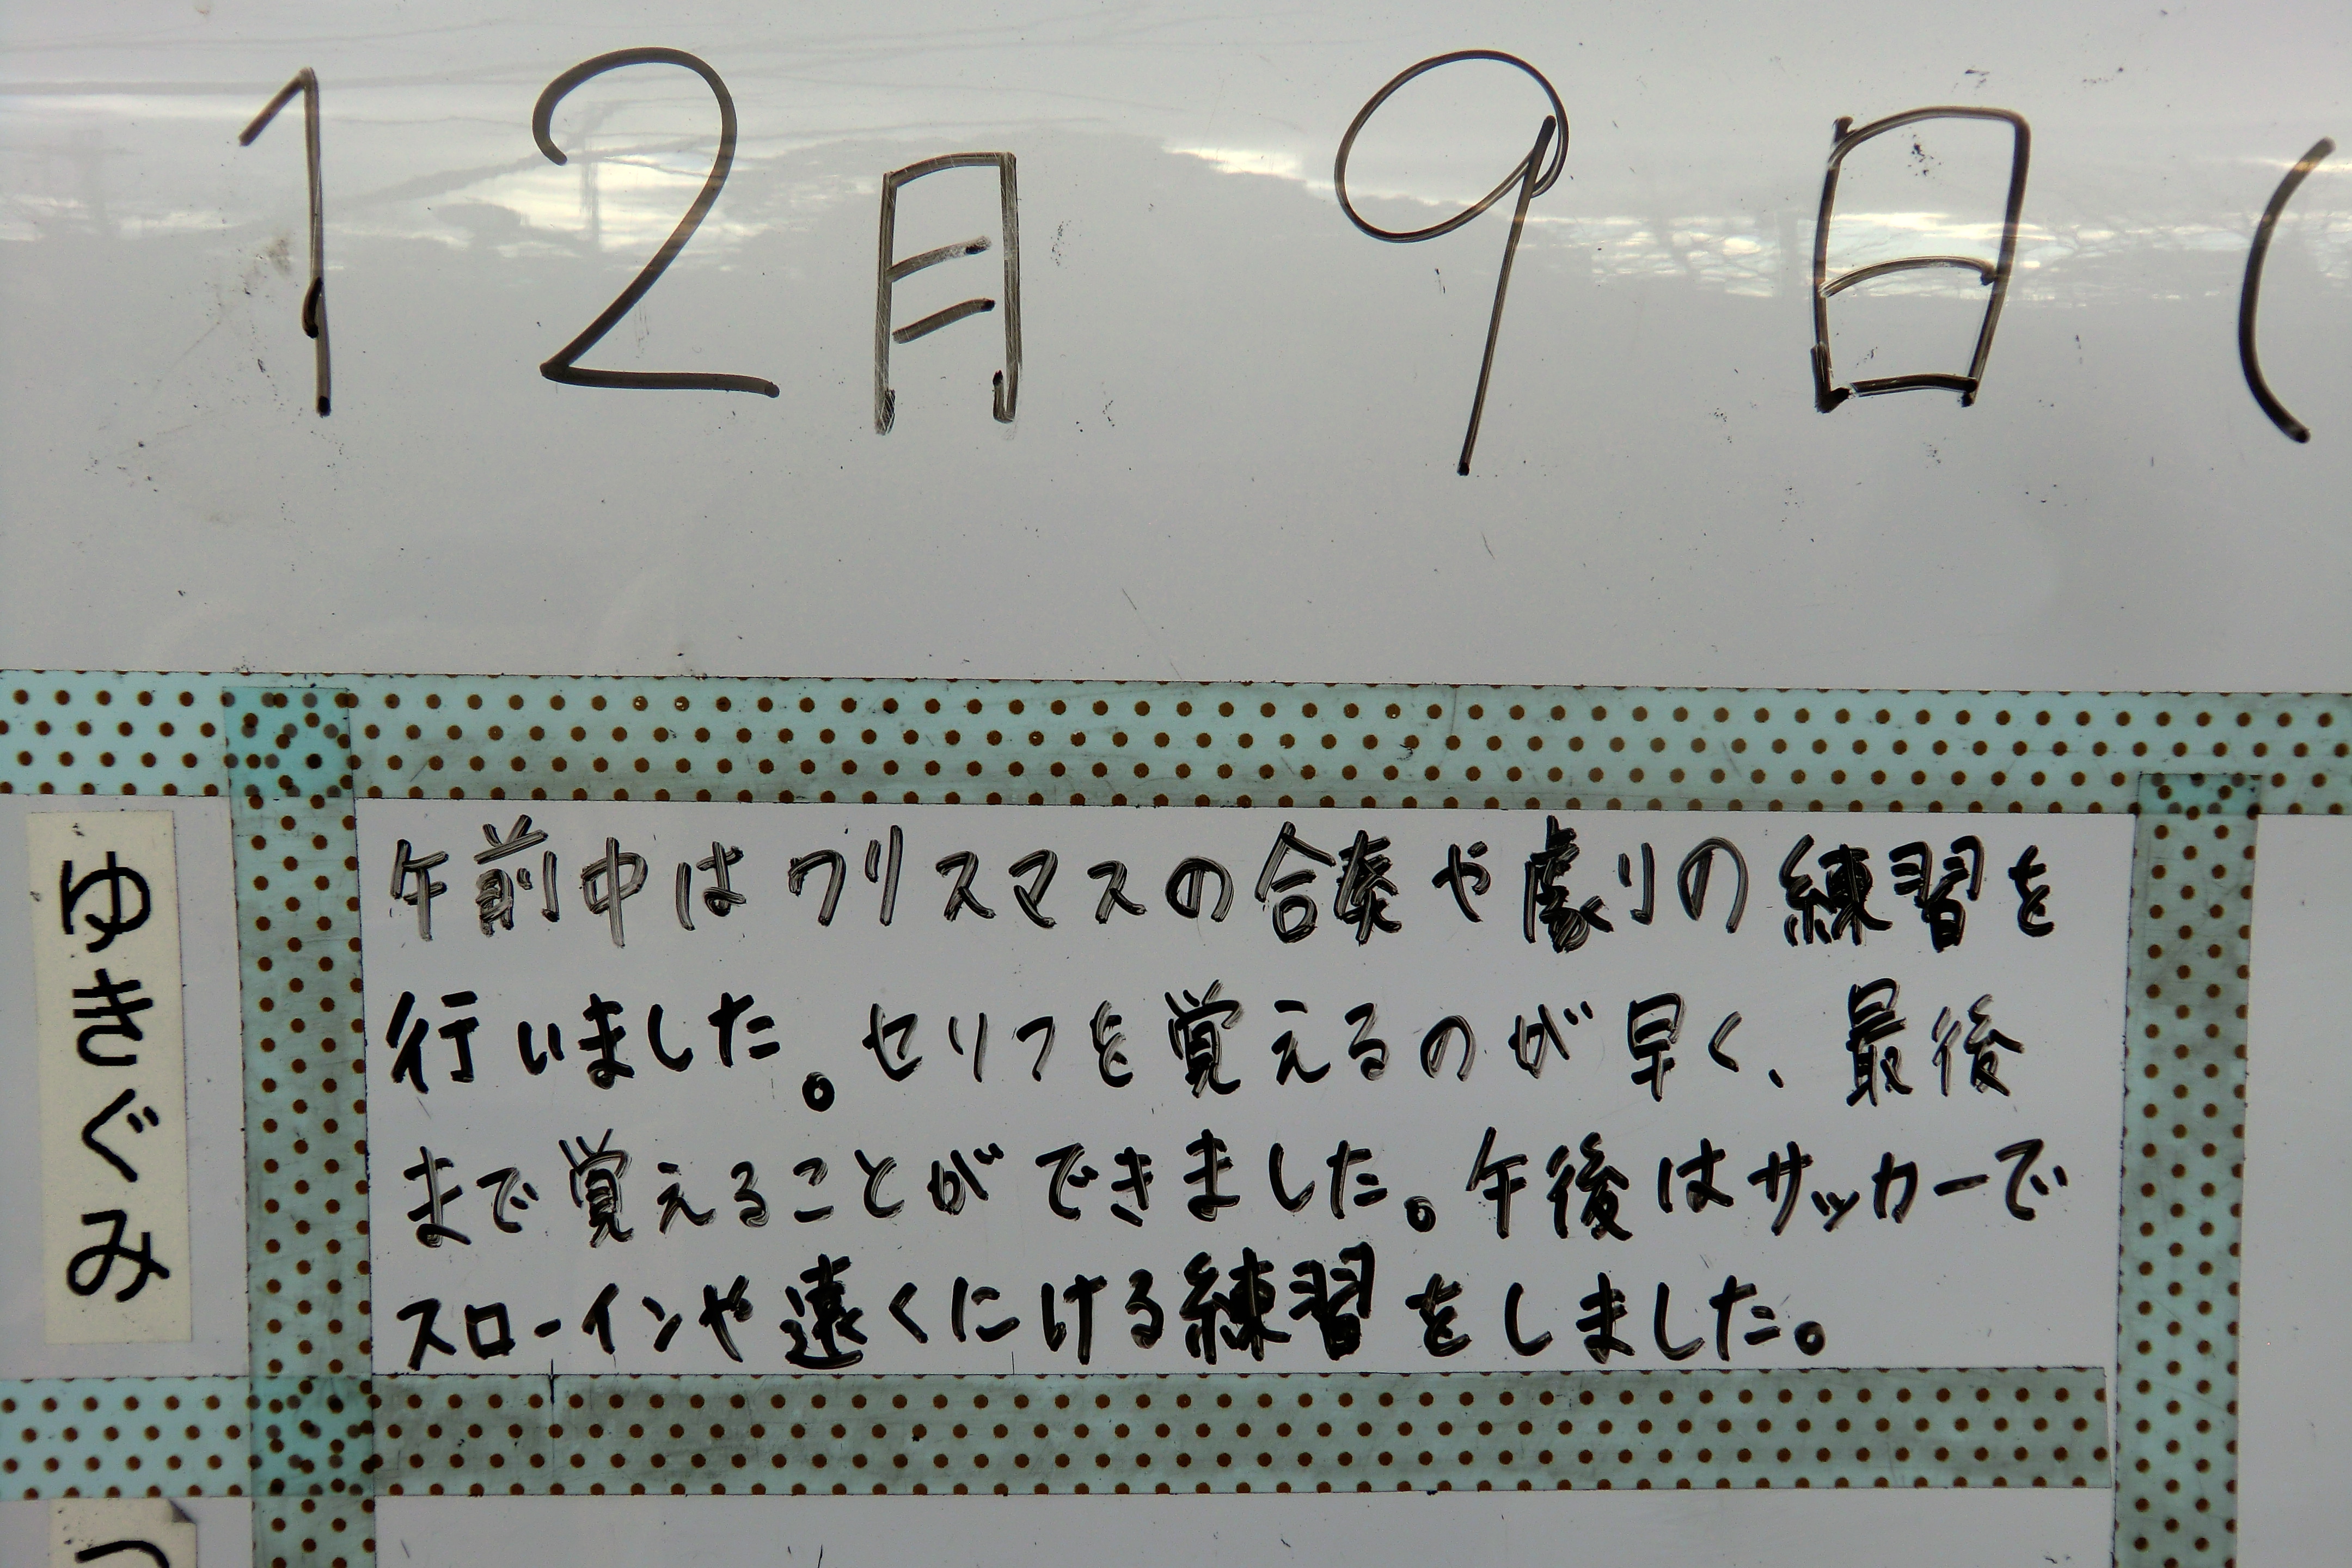 12月 9日(
ゆきぐみ
午前中はクリスマスの合奏や劇の練習を
行いました。セリフを覚えるのが早く、最後
まで覚えることができました。午後はサッカーで
スローインや遠くにける練習をしました。
つ